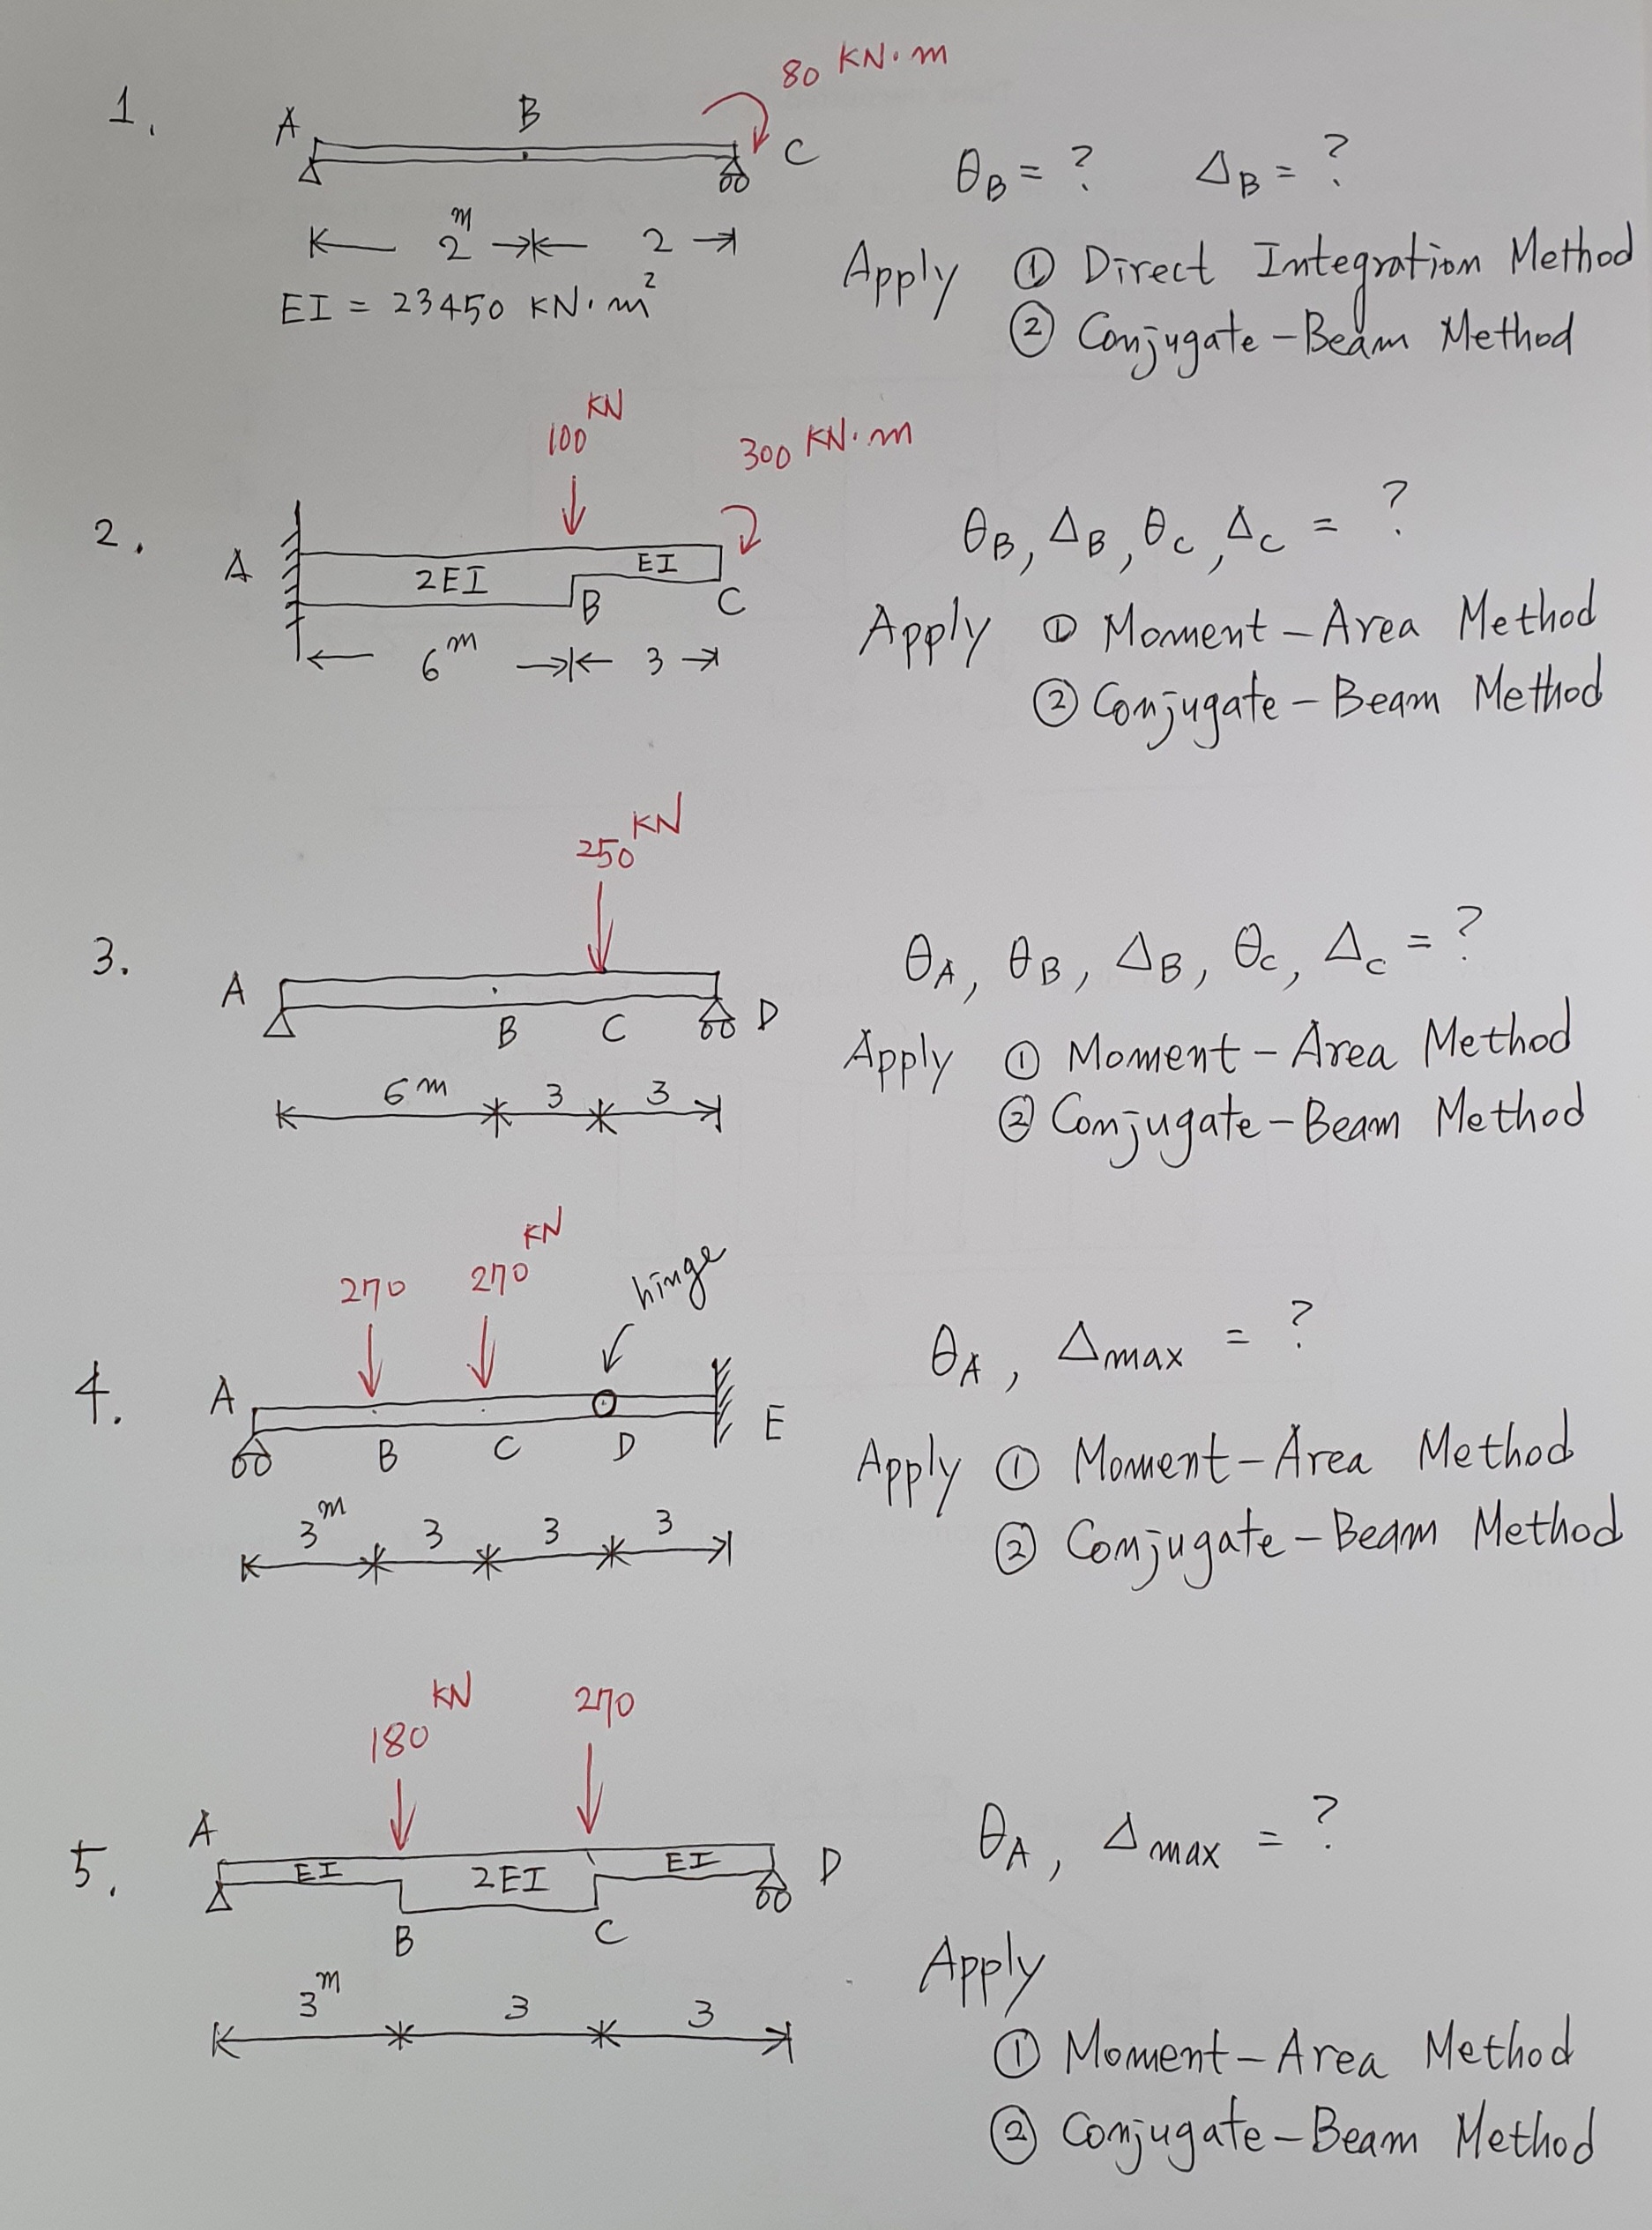 1.
80 KN·m
A B C
θB = ? ΔB = ?
2 m 2
EI = 23450 KN·m²
Apply ① Direct Integration Method
② Conjugate-Beam Method
2.
100 KN
300 KN·m
A 2EI B EI C
6 m 3
θB, ΔB, θC, ΔC = ?
Apply ① Moment-Area Method
② Conjugate-Beam Method
3.
250 KN
A B C D
6 m 3 3
θA, θB, ΔB, θC, ΔC = ?
Apply ① Moment-Area Method
② Conjugate-Beam Method
4.
270 270 KN hinge
A B C D E
3 m 3 3 3
θA, Δmax = ?
Apply ① Moment-Area Method
② Conjugate-Beam Method
5.
180 KN 270
A EI 2EI EI D
B C
3 m 3 3
θA, Δmax = ?
Apply
① Moment-Area Method
② Conjugate-Beam Method